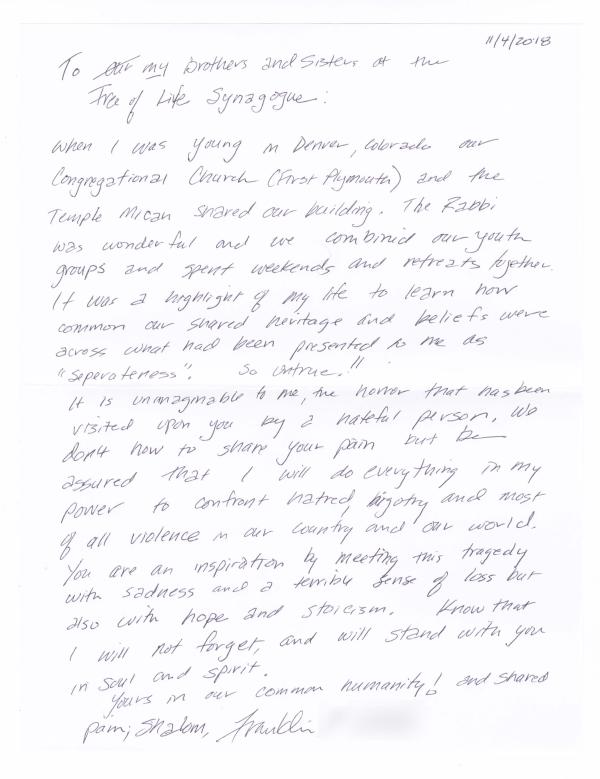 11/4/2018
To our my brothers and sisters at the
Tree of Life Synagogue:
When I was young in Denver, Colorado our
Congregational Church (First Plymouth) and the
Temple Mican shared our building. The Rabbi
was wonderful and we combined our youth
groups and spent weekends and retreats together.
It was a highlight of my life to learn how
common our shared heritage and beliefs were
across what had been presented to me as
"seperateness". So untrue.!!
It is unimaginable to me, the horror that has been
visited upon you by a hateful person. We
don't how to share your pain but be
assured that I will do everything in my
power to confront hatred, bigotry and most
of all violence in our country and our world.
You are an inspiration by meeting this tragedy
with sadness and a terrible sense of loss but
also with hope and stoicism. Know that
I will not forget, and will stand with you
in soul and spirit.
Yours in our common humanity! and shared
pain; Shalom, Franklin